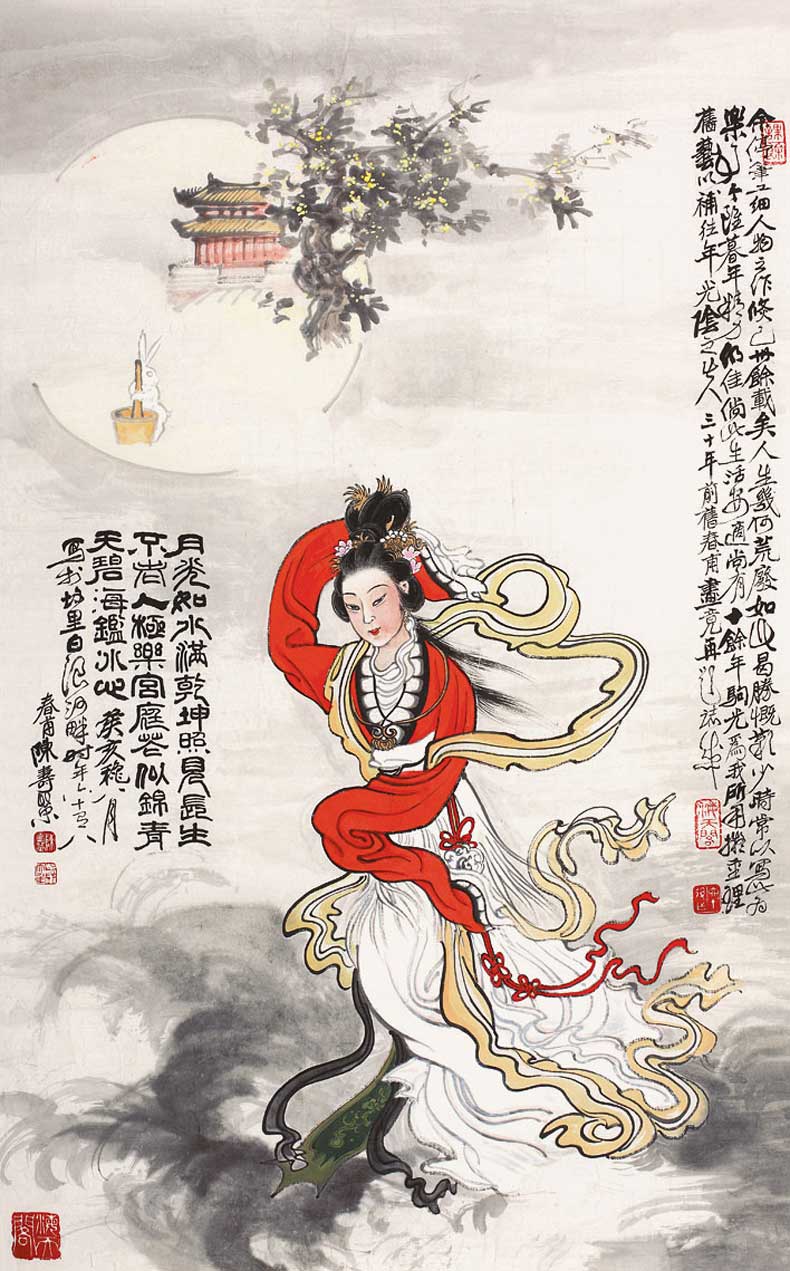 余停筆工細人物之作倏已卅餘載矣人生幾何荒廢如此曷勝慨歎少時常以寫此為
樂今雖暮年精力仍佳倘此生活安適尚有十餘年駒光為我所用擬重理
舊藝以補往年光陰之失 三十年前舊 春甫畫竟再
月光如水滿乾坤照見長生
不老人極樂宮庭花似錦青
天碧海鑑冰心 癸亥穐月
寫於 里日 河畔時年六十有八
春甫陳壽彝
海天閣
海天閣